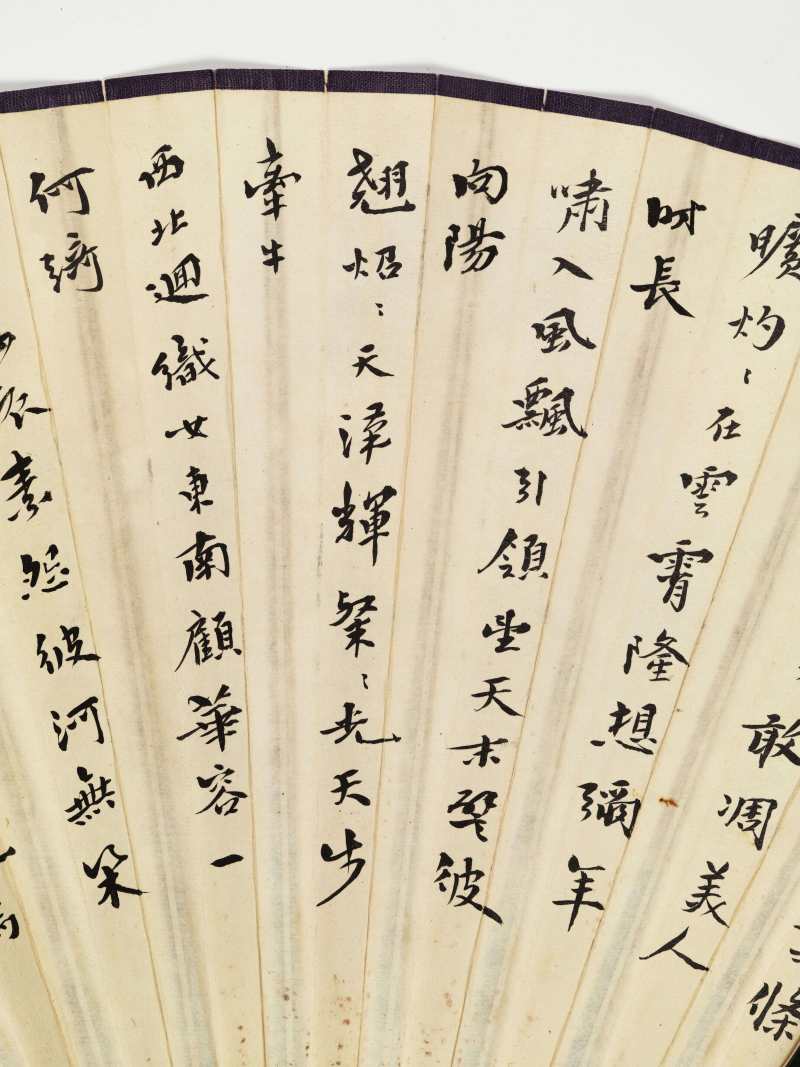 條
敢凋美人
曠灼〻在雲霄隆想彌年
时長
嘯入風飄引領望天末譬彼
向陽
翹炤〻天漢輝粲〻光天步
牽牛
西北迴織女東南顧華容一
何綺
素怨彼河無梁